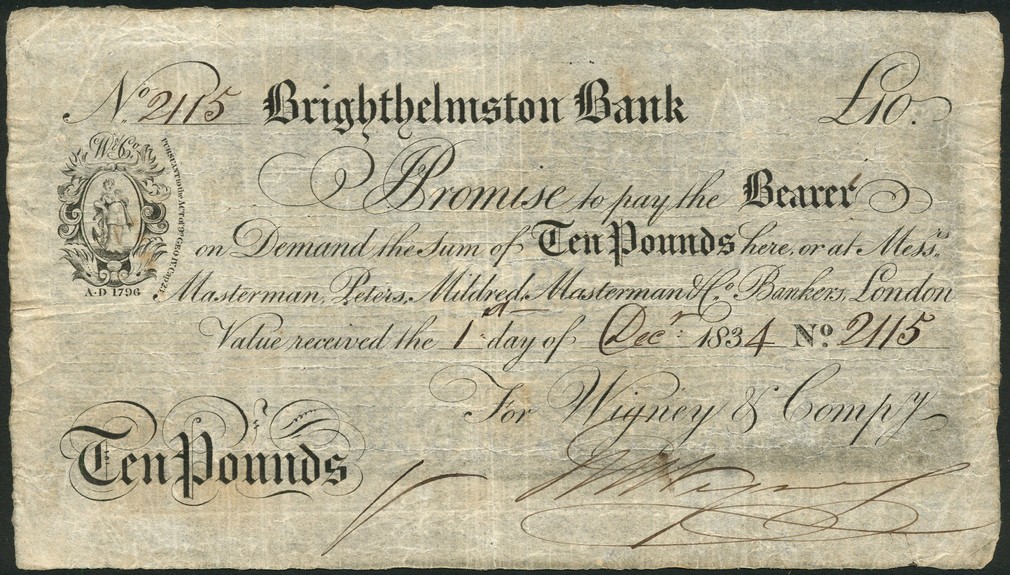 No. 2115 Brighthelmston Bank £10.
W & Co.
PURSUANT to the ACT of 9th GEO IV Cap 23
A·D 1796
I Promise to pay the Bearer
on Demand the Sum of Ten Pounds here, or at Messrs.
Masterman, Peters, Mildred, Masterman & Co. Bankers, London
Value received the 1st day of Decr. 1834 No. 2115
For Wigney & Compy
Ten Pounds
Wigney